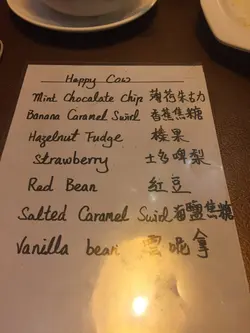 Happy Cow
Mint Chocolate Chip 薄荷朱古力
Banana Caramel Swirl 香蕉焦糖
Hazelnut Fudge 榛果
Strawberry 士多啤梨
Red Bean 紅豆
Salted Caramel Swirl 海鹽焦糖
Vanilla bean 雲呢拿